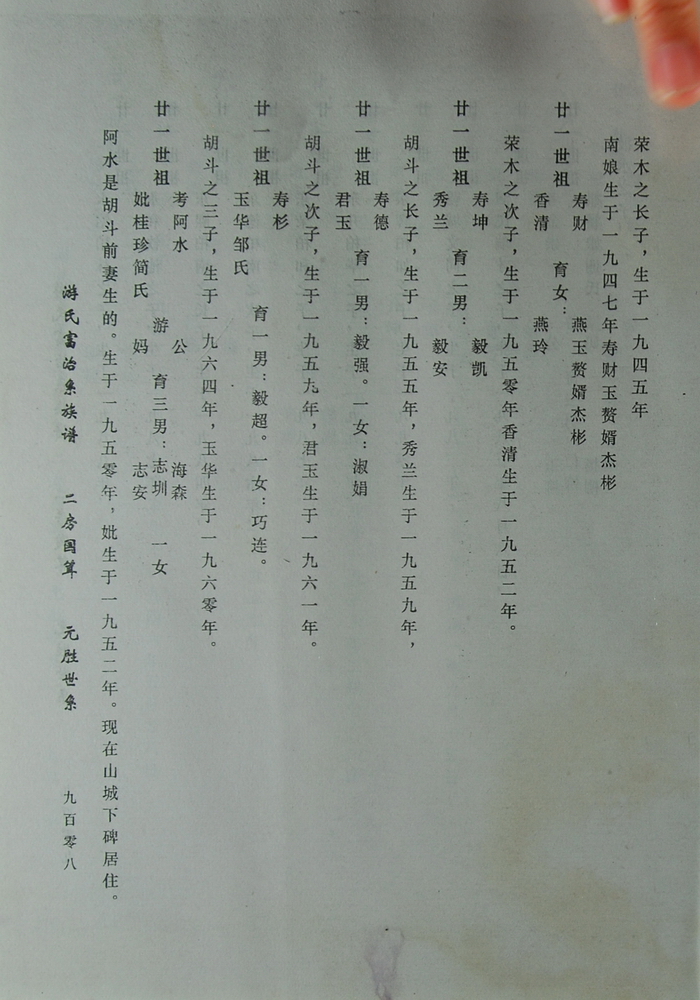 荣木之长子，生于一九四五年
南娘生于一九四七年寿财玉赘婿杰彬
寿财 燕玉赘婿杰彬
廿一世祖 育女：
香清 燕玲
荣木之次子，生于一九五零年香清生于一九五二年。
寿坤 毅凯
廿一世祖 育二男：
秀兰 毅安
胡斗之长子，生于一九五五年，秀兰生于一九五九年，
寿德
廿一世祖 育一男：毅强。一女：淑娟
君玉
胡斗之次子，生于一九五九年，君玉生于一九六一年。
寿杉
廿一世祖 育一男：毅超。一女：巧连。
玉华邹氏
胡斗之三子，生于一九六四年，玉华生于一九六零年。
考阿水 公 海森
廿一世祖 游 育三男：志圳 一女
妣桂珍简氏 妈 志安
阿水是胡斗前妻生的。生于一九五零年，妣生于一九五二年。现在山城下碑居住。
游氏富治系族谱 二房国 元胜世系 九百零八